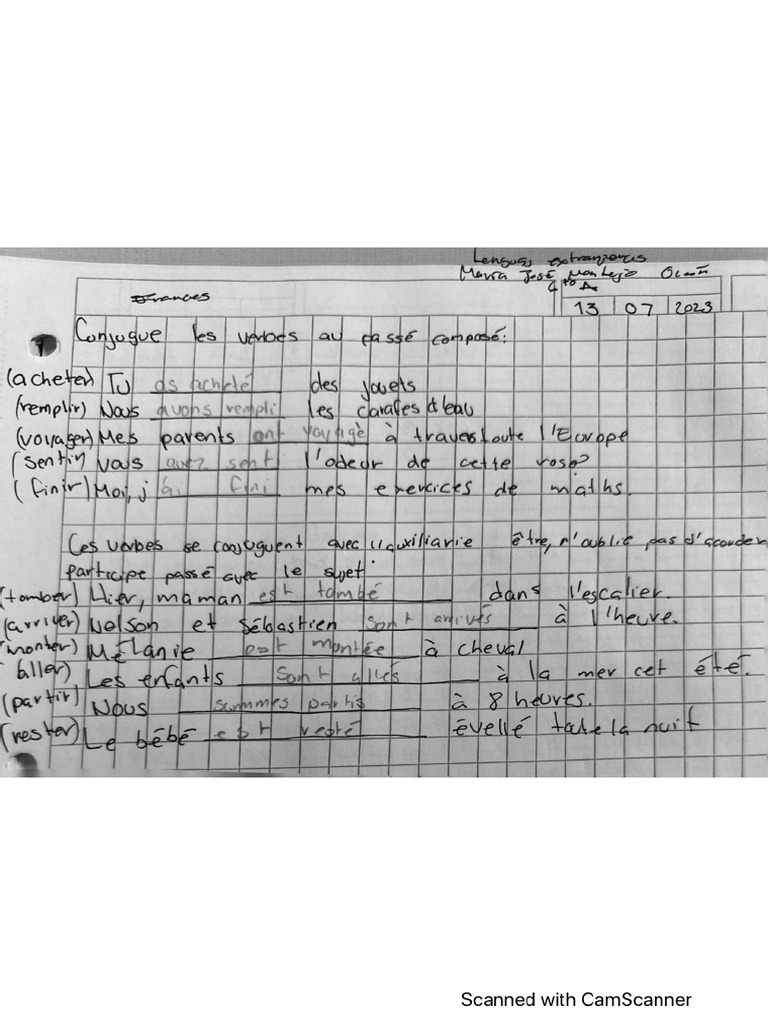 Lenguas extranjeras
María José Montejo
4to A
Frances
13 07 2023
1 Conjugue les verbes au passé composé:
(acheter) Tu as acheté des jouets
(remplir) Nous avons rempli les carafes d'eau
(voyager) Mes parents ont voyagé à travers toute l'Europe
(sentir) vous avez senti l'odeur de cette rose?
(finir) Moi, j'ai fini mes exercices de maths.
Ces verbes se conjuguent avec l'auxiliarie être, n'oublie pas d'accorder
participe passé avec le sujet.
(tomber) Hier, maman est tombé dans l'escalier.
(arriver) Nelson et Sébastien sont arrivés à l'heure.
(monter) Mélanie est montée à cheval
(aller) Les enfants sont allés à la mer cet été.
(partir) Nous sommes partis à 8 heures.
(rester) Le bébé est resté évellé toute la nuit
Scanned with CamScanner